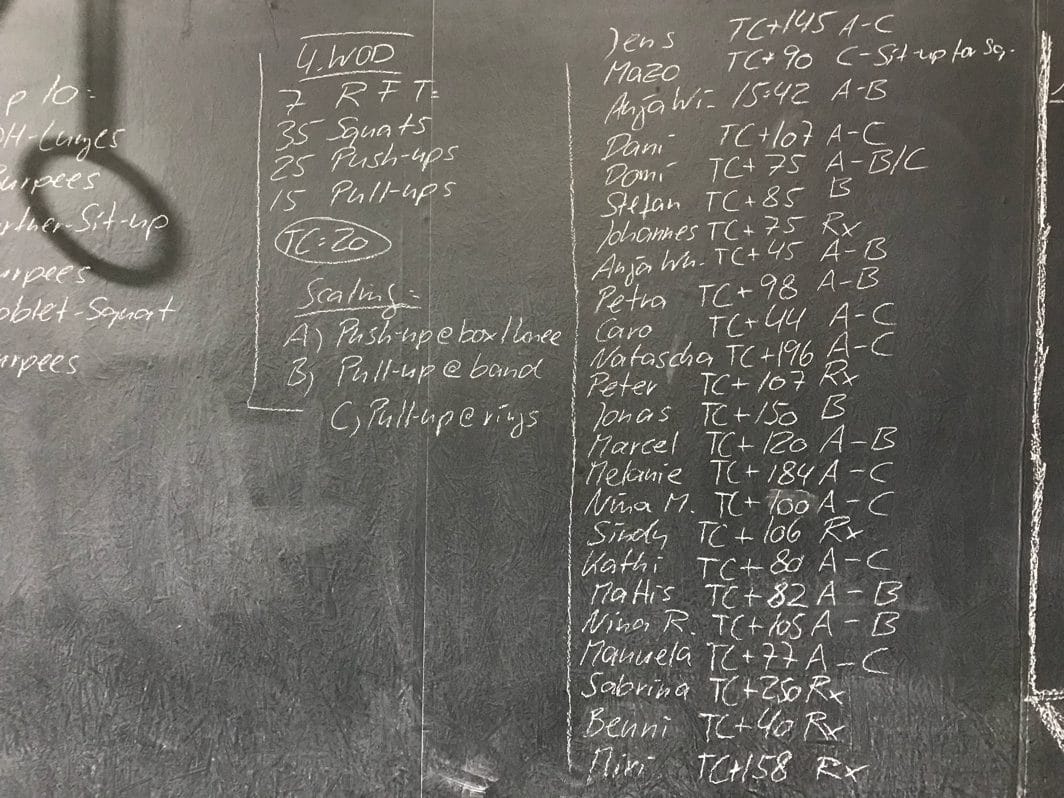 p 10:
H-Lunges
urpees
rtner-Sit-up
urpees
oblet-Squat
urpees
4. WOD
7 RFT:
35 Squats
25 Push-ups
15 Pull-ups
TC=20
Scaling:
A) Push-up@box/knee
B) Pull-up@band
C) Pull-up@rings
Jens TC+145 A-C
Mazo TC+90 C-Sit-up for Sq.
Anja Wi- 15:42 A-B
Dani TC+107 A-C
Domi TC+75 A-B/C
Stefan TC+85 B
Johannes TC+75 Rx
Anja Wn. TC+45 A-B
Petra TC+98 A-B
Caro TC+44 A-C
Natascha TC+196 A-C
Peter TC+107 Rx
Jonas TC+150 B
Marcel TC+120 A-B
Melanie TC+184 A-C
Nina M. TC+100 A-C
Sindy TC+106 Rx
Kathi TC+80 A-C
Mattis TC+82 A-B
Nina R. TC+105 A-B
Manuela TC+77 A-C
Sabrina TC+250 Rx
Benni TC+40 Rx
Miri TC+158 Rx